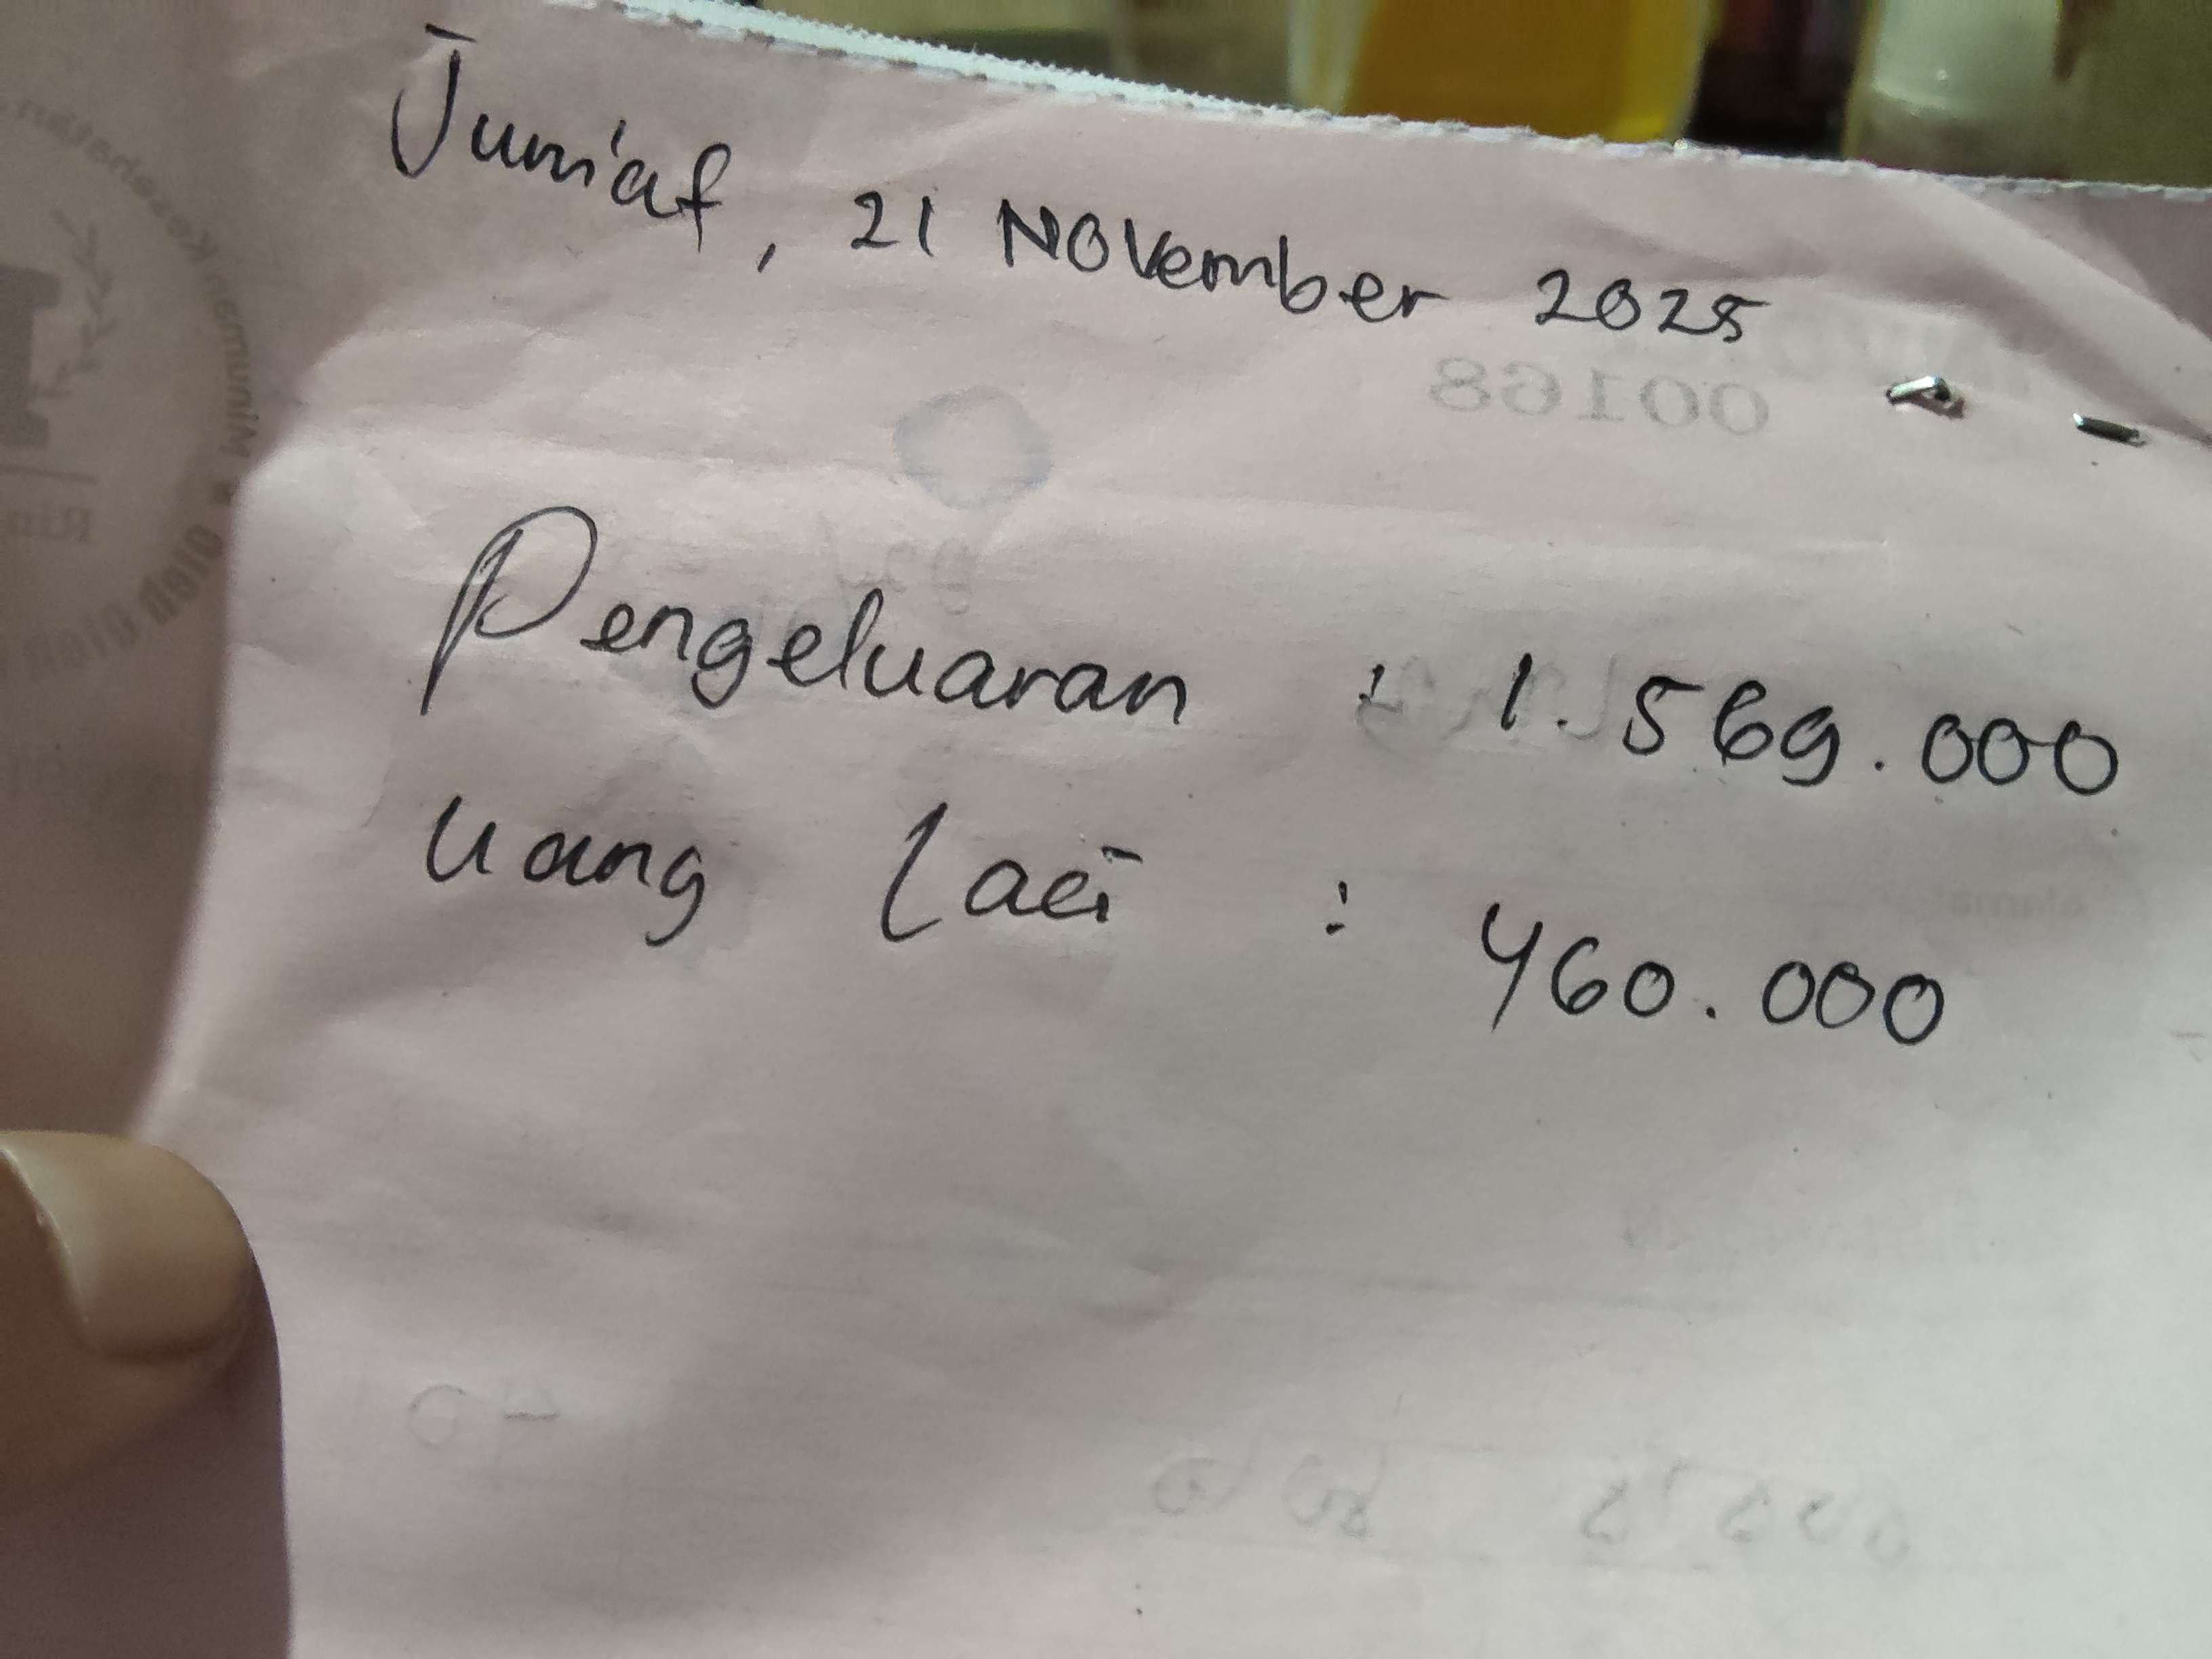 Jum'at, 21 November 2025
00168
Pengeluaran : 1.569.000
uang Laci : 460.000